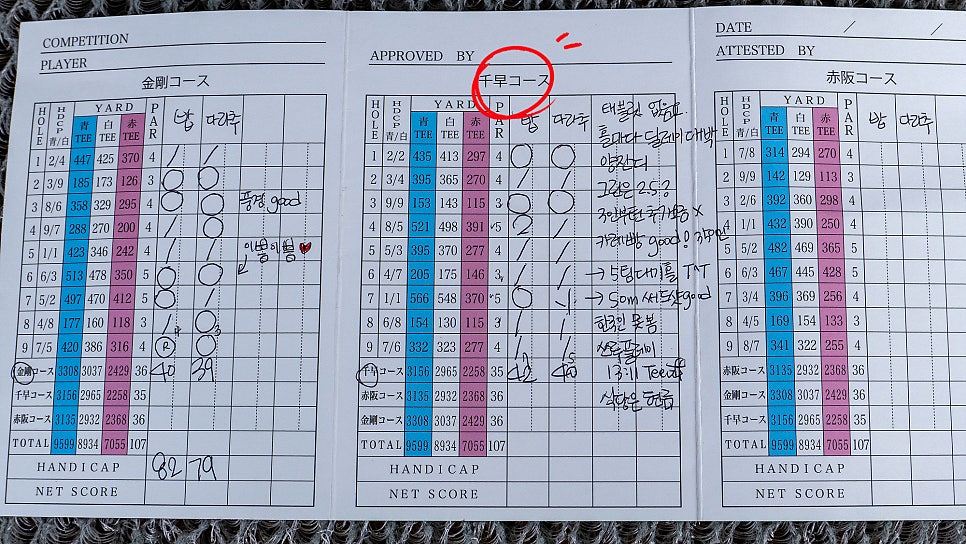 COMPETITION
PLAYER
金剛コース
HOLE HDCP 青/白 YARD PAR 밤 다라추
青TEE 白TEE 赤TEE
1 2/4 447 425 370 4 / /
2 3/9 185 173 126 3 ○ ○
3 8/6 358 329 295 4 ○ ○ 풍경 good
4 9/7 288 270 200 4 / ○
5 1/1 423 346 242 4 / /
6 6/3 513 478 350 5 ○ ○
7 5/2 497 470 412 5 ○ /
8 4/8 177 160 118 3 / ○
9 7/5 420 386 316 4 ○
金剛コース 3308 3037 2429 36 40 39
千早コース 3156 2965 2258 35
赤阪コース 3135 2932 2368 36
TOTAL 9599 8934 7055 107
HANDICAP 82 79
NET SCORE
APPROVED BY
千早コース
HOLE HDCP 青/白 YARD PAR 밤 다라추
青TEE 白TEE 赤TEE
1 2/2 435 413 297 4 ○ ○
2 3/4 395 365 270 4 / /
3 9/9 153 143 115 3 ○ ○
4 8/5 521 498 391 5 2 /
5 5/3 395 370 277 4 / /
6 4/7 205 175 146 3 / /
7 1/1 566 548 370 5 ○
8 6/8 154 130 115 3 / /
9 7/6 332 323 277 4
千早コース 3156 2965 2258 35 42 40
赤阪コース 3135 2932 2368 36
金剛コース 3308 3037 2429 36
TOTAL 9599 8934 7055 107
HANDICAP
NET SCORE
태블릿 없음요
홀마다 딜레이 대박
양잔디
그린은 2.5?
3인부턴 추가요금 X
카레빵 good!
→ 5팀 대기홀 T^T
→ 50m 써드샷 good
한국인 못봄
쓰루플레이
13:11 Tee off
식당은 현금
DATE / /
ATTESTED BY
赤阪コース
HOLE HDCP 青/白 YARD PAR 밤 다라추
青TEE 白TEE 赤TEE
1 7/8 314 294 270 4
2 9/9 142 129 113 3
3 2/6 392 360 298 4
4 1/1 432 390 250 4
5 5/2 482 469 365 5
6 6/3 467 445 428 5
7 3/4 396 369 256 4
8 4/5 169 154 133 3
9 8/7 341 322 255 4
赤阪コース 3135 2932 2368 36
金剛コース 3308 3037 2429 36
千早コース 3156 2965 2258 35
TOTAL 9599 8934 7055 107
HANDICAP
NET SCORE